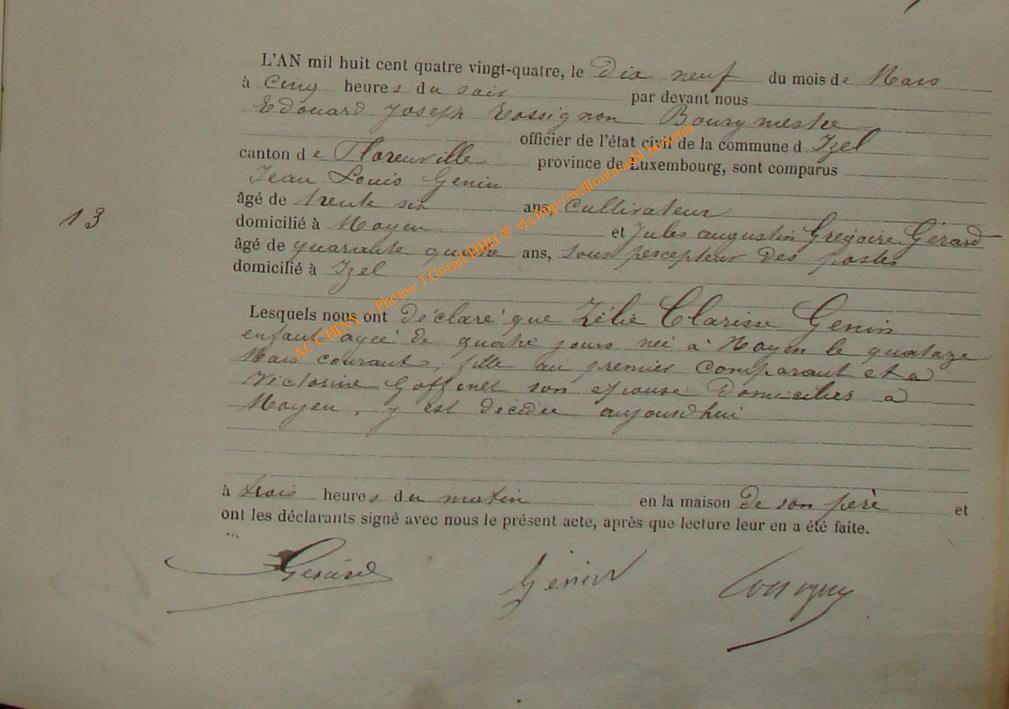 L'AN mil huit cent quatre vingt-quatre, le Dix neuf du mois de Mars
à Cinq heures du soir par devant nous
Edouard Joseph Rossignon Bourgmestre
officier de l'état civil de la commune d Izel
canton de Florenville province de Luxembourg, sont comparus
Jean Louis Genin
13
âgé de trente six ans, Cultivateur
domicilié à Moyen et Jules augustin Grégoire Gérard
âgé de quarante quatre ans, sous percepteur des postes
domicilié à Izel
Lesquels nous ont déclaré que Zélie Clarisse Genin
enfant agée de quatre jours née à Moyen le quatorze
Mars courant, fille au premier comparant et a
Victorine Goffinet son epouse domiciliés a
Moyen, y est décédée aujourdhui
à trois heures du matin en la maison de son père et
ont les déclarants signé avec nous le présent acte, après que lecture leur en a été faite.
Gérard Genin
AC CHINY - Photos: J.Cornet via http://wallonia-asbl.be/actes